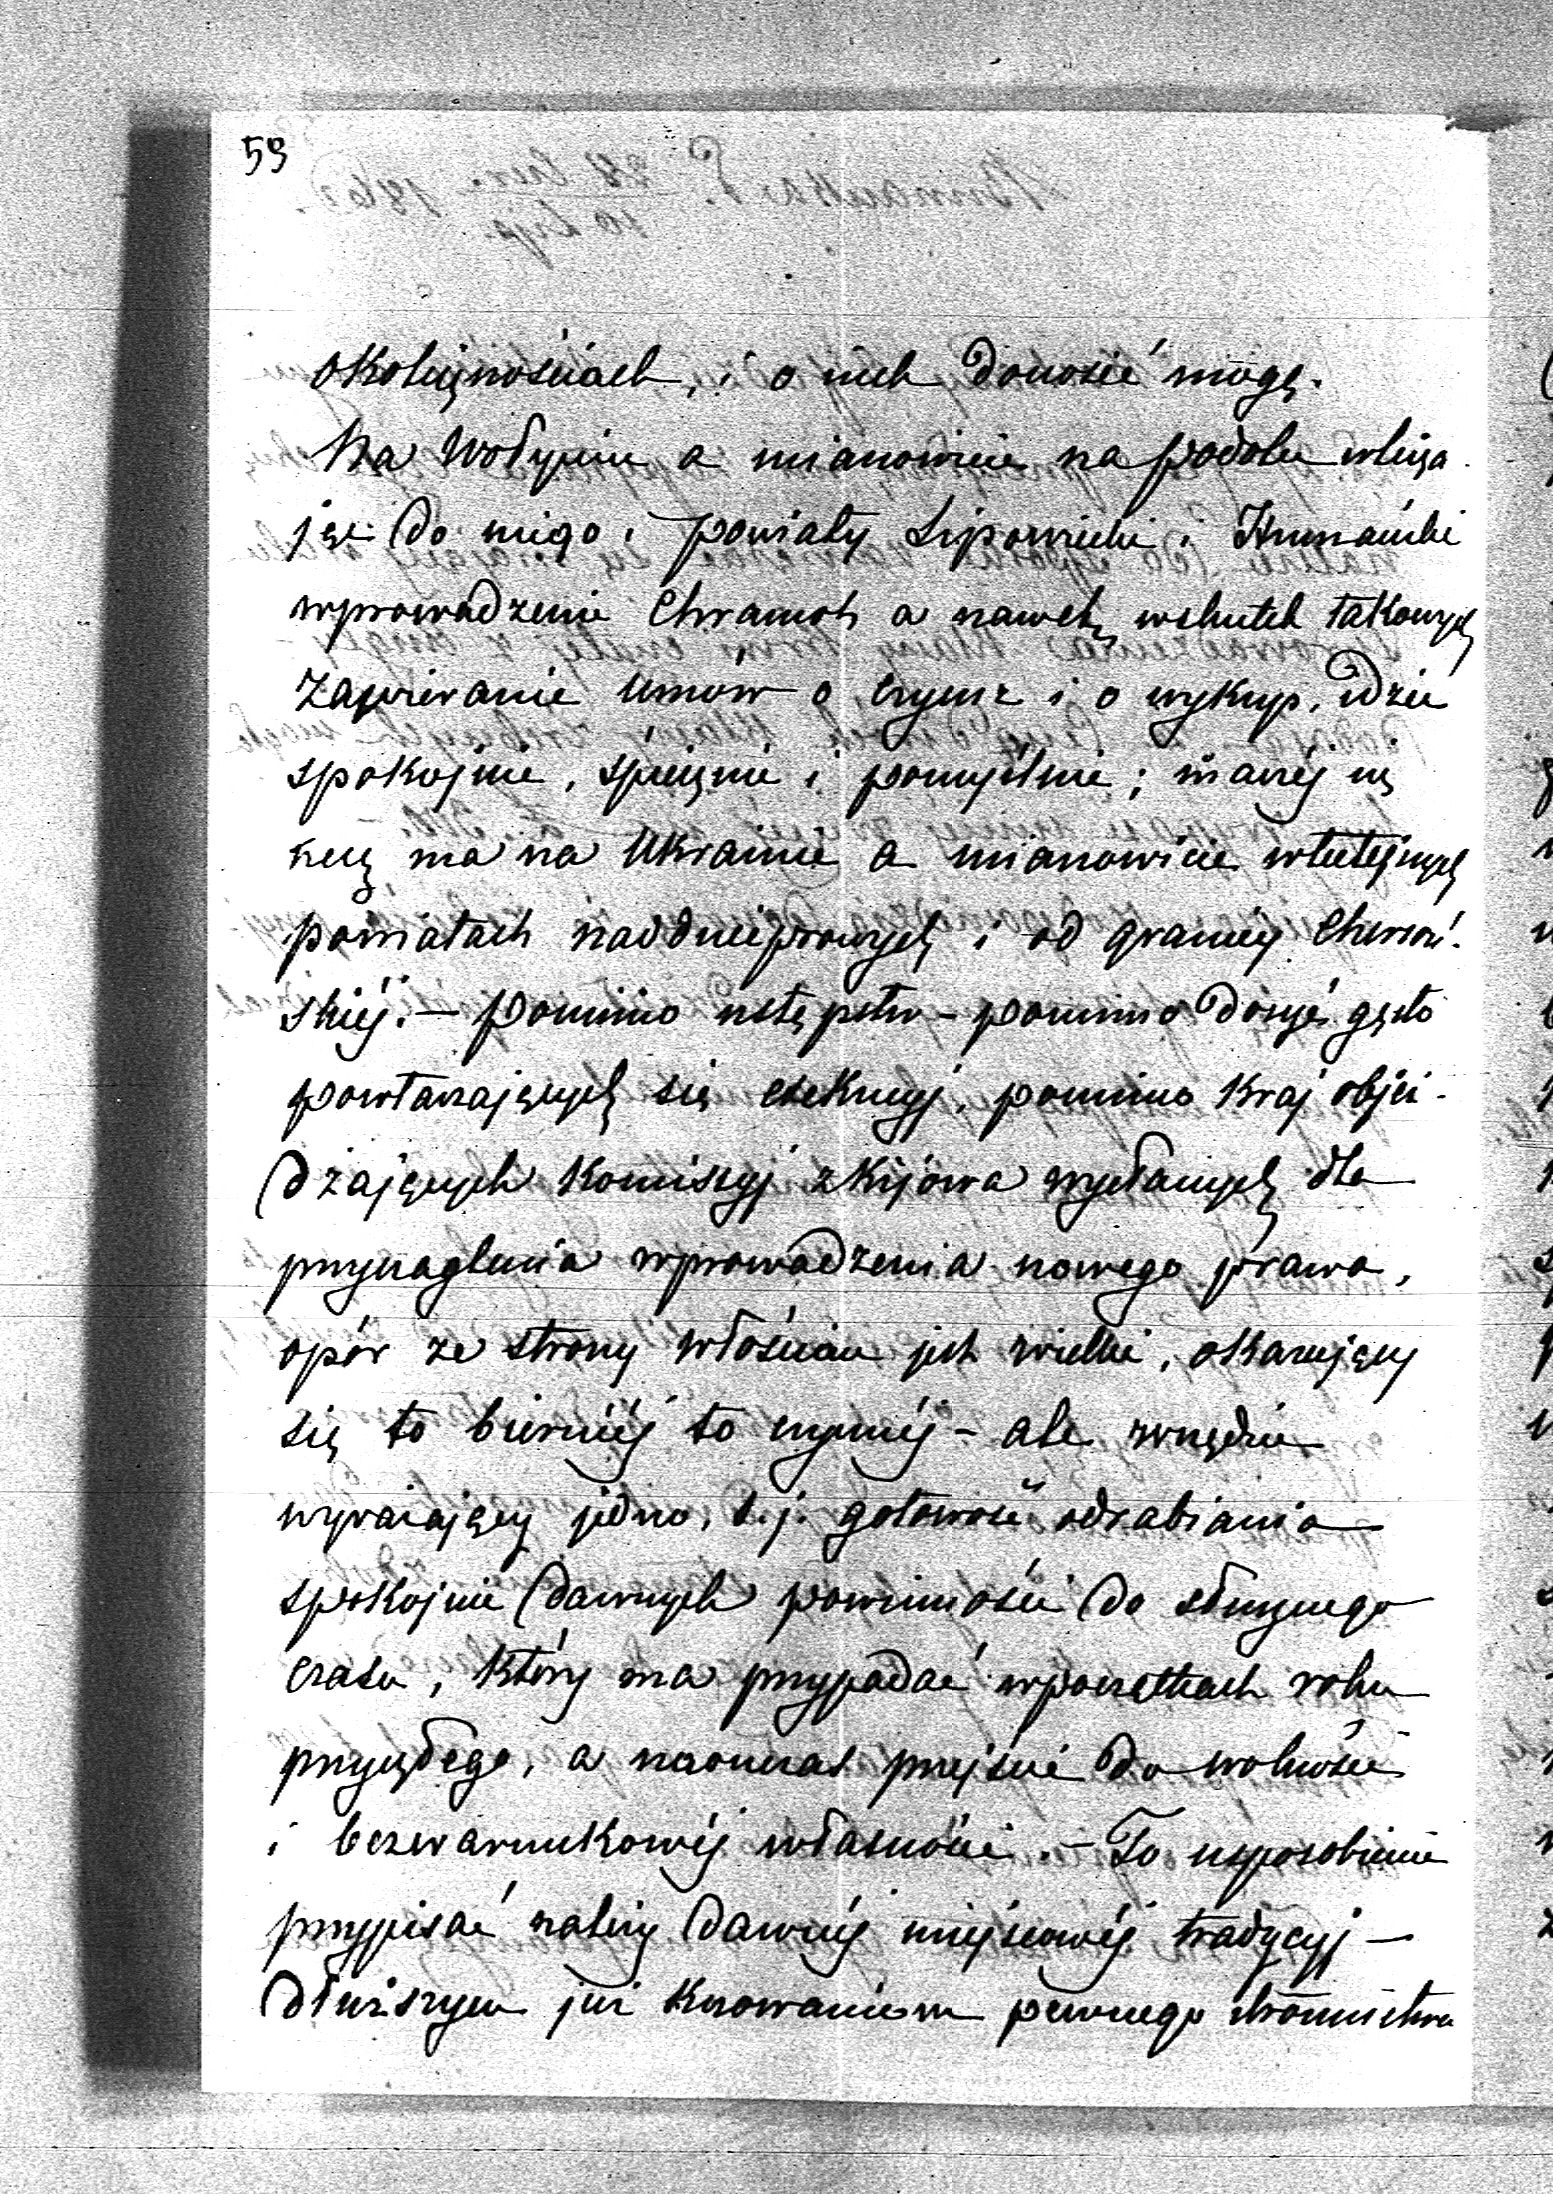 59
okolicznościach, i o nich donosić mogę.
Na Wołyniu a mianowicie na podolu wlicza
jąc do niego powiaty Lipowiecki i Humański
wprowadzenie Chramot a nawet wskutek takowych
zawieranie umów o czynsz i o wykup, idzie
spokojnie, spiesznie i pomyślnie; inaczej się
rzecz ma na Ukrainie a mianowicie wtutejszych
powiatach naddnieprowych i od granicy Cherson-
skiéj. – pomimo ustępstw – pomimo dosyć gęsto
powtarzających się exekucyj, pomimo Kraj objeż-
dżających Komissyj z Kijowa wysłanych dla
przynaglenia wprowadzenia nowego prawa,
opór ze strony włościan jest wielki, okazujący
się to bierniéj to czynniéj – ale wszędzie
wyrażający jedno, t.j. gotowość odrabiania
spokojnie dawnych powinności do słusznego
czasu, który ma przypadać wpoczątkach roku
przyszłego, a naówczas przejście do wolności
i bezwarunkowéj własności. – To usposobienie
przypisać należy dawnéj miejscowéj tradycyj –
dłuższym już Kurowaniem pewnego stronnictwa